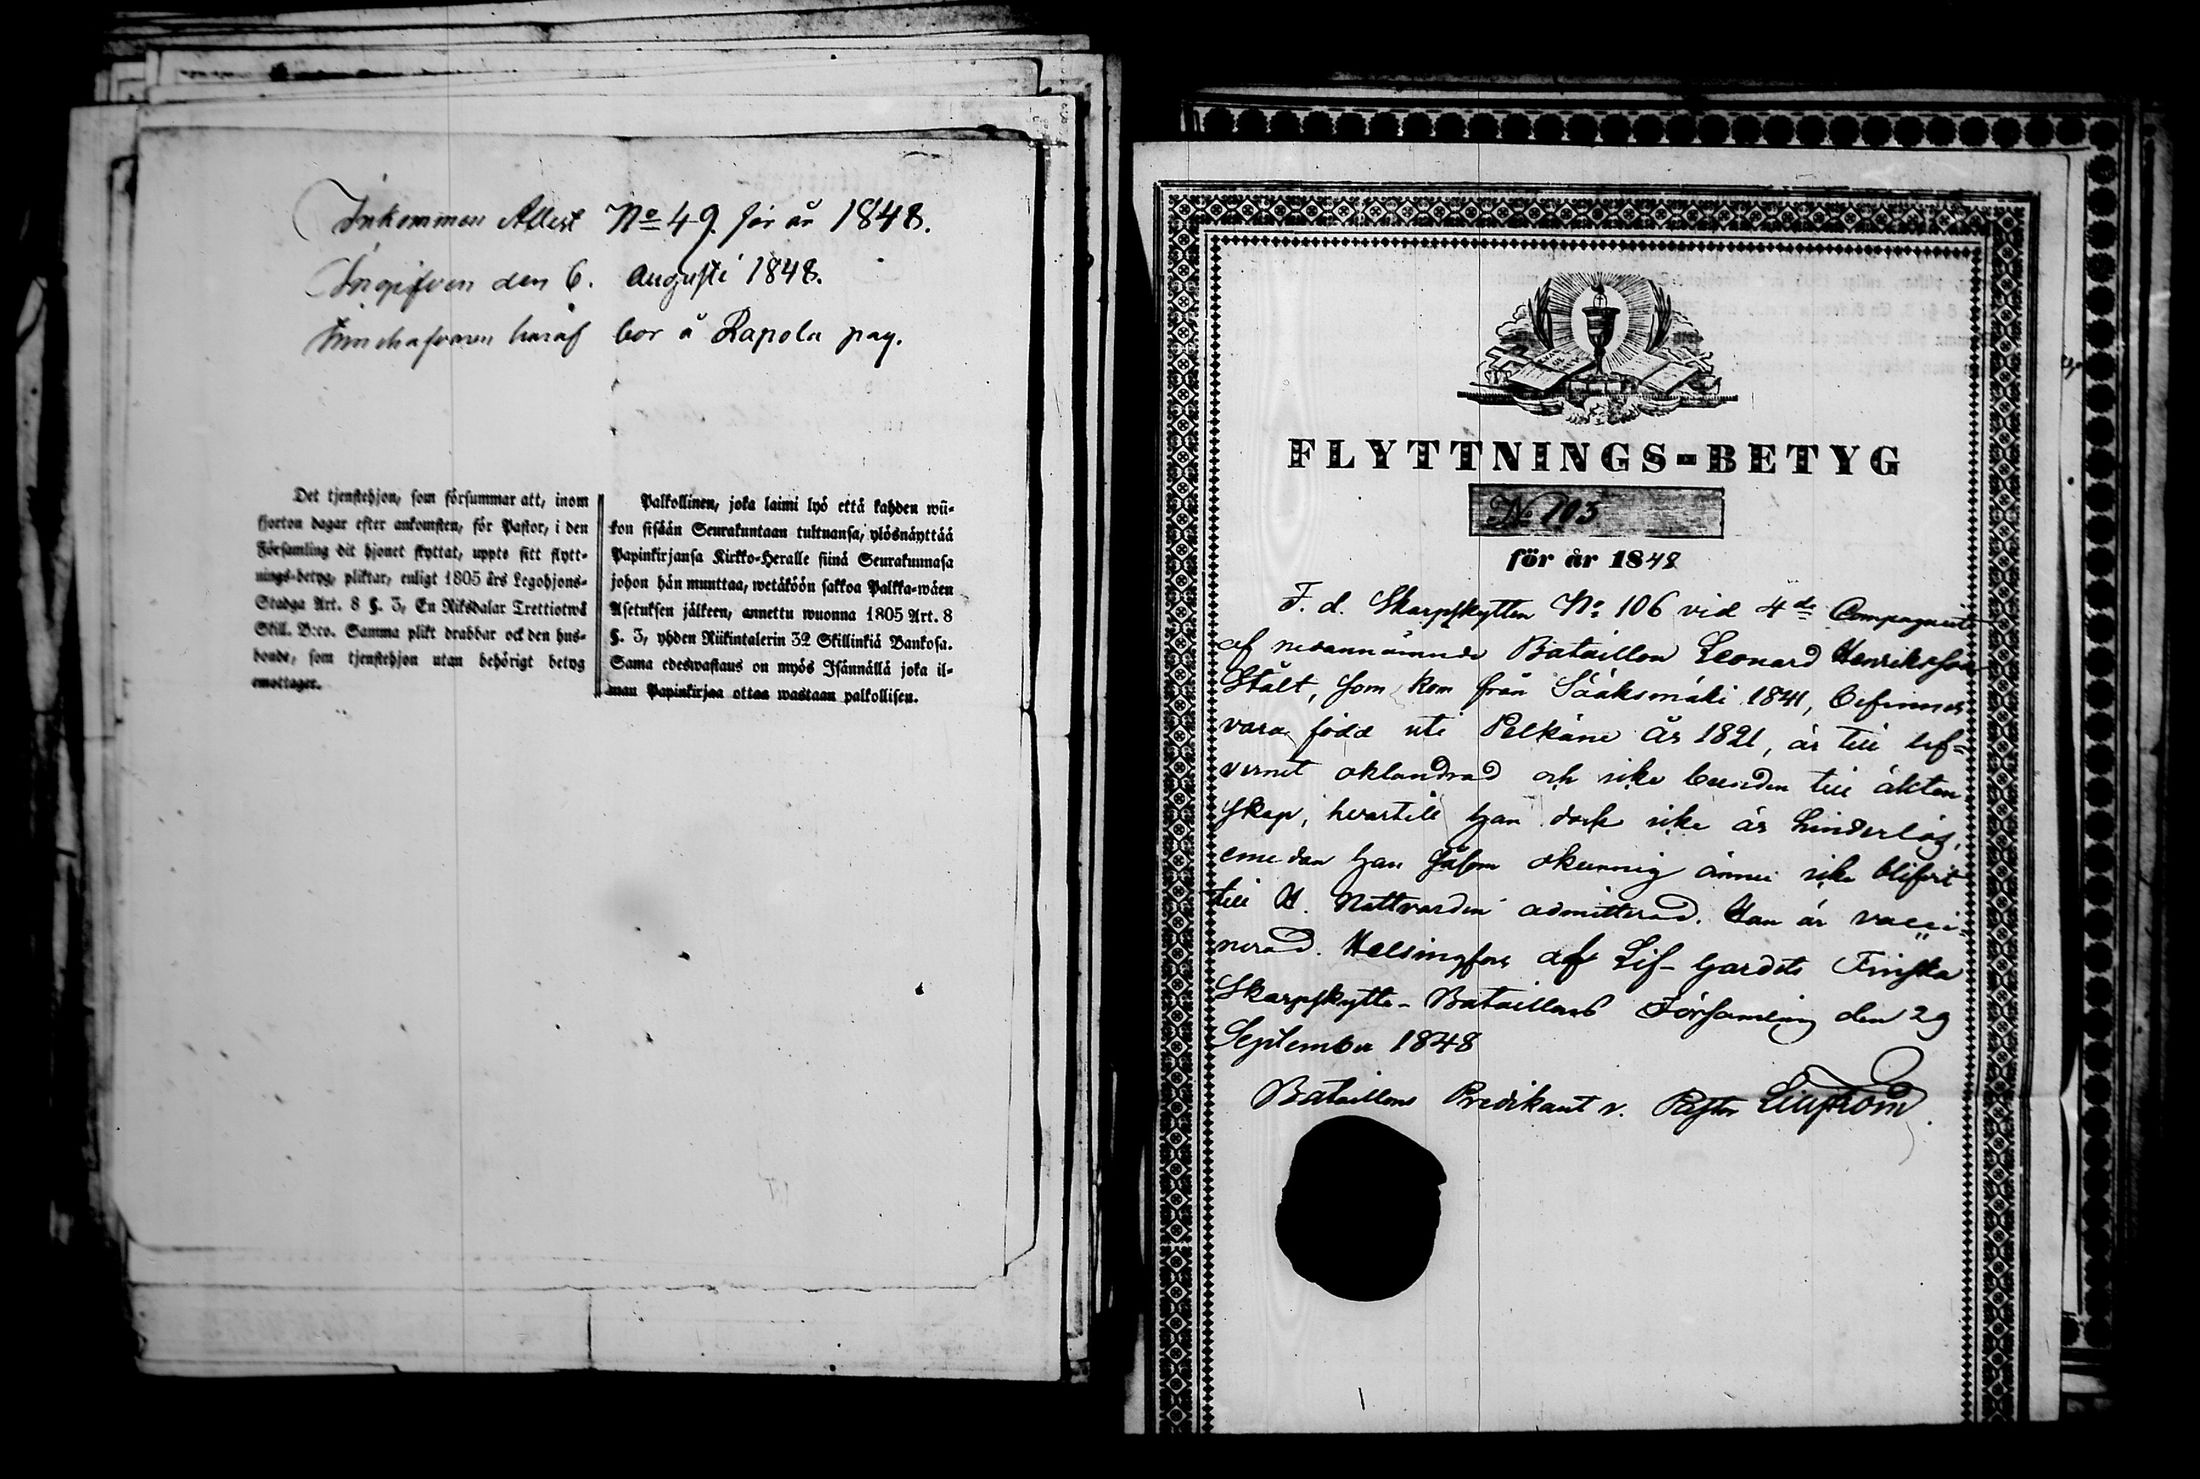 Inkommen Attest No 49. för år 1848.
Ingifven den 6. Augusti 1848.
Innehafvaren häraf bor å Rapola pag.
Det tjenstehjon, som försummar att, inom
fjorton dagar efter ankomsten, för Pastor, i den
Församling dit hjonet flyttat, uppte sitt flytt-
nings-betyg, pliktar, enligt 1805 års Legohjons-
Stadga Art. 8 §. 3, En Riksdalar Trettiotwå
Skill. B:co. Samma plikt drabbar ock den hus-
bonde, som tjenstehjon utan behörigt betyg
emottager.
Palkollinen, joka laimi lyö että kahden wii-
kon sisään Seurakuntaan tultuansa, ylösnäyttää
Papinkirjansa Kirkko-Heralle siinä Seurakunnasa
johon hän munttaa, wetäköön sakkoa Palkka-wäen
Asetuksen jälkeen, annettu wuonna 1805 Art. 8
§. 3, yhden Riikintalerin 32 Skillinkiä Bankosa.
Sama edeswastaus on myös Isännällä joka il-
man Papinkirjaa ottaa wastaan palkollisen.
FLYTTNINGS-BETYG
No 103
för år 1848
F. d. Skarpskytten No 106 vid 4de Compagniet
af nedannämnde Bataillon Leonard Henriksson
Stålt, som kom från Sääksmäki 1841, befinnes
vara född uti Pelkäne år 1821, är till lef-
vernet oklandrad och icke bunden till äkten
skap, hvartill han dock icke är hinderlös,
emedan han såsom okunnig ännu icke blifvit
till H. Nattvarden admitterad. Han är vacci-
nerad. Helsingfors af Lif-Gardets Finska
Skarpskytte-Bataillons Församling den 29
September 1848
Bataillons Predikant v. Pastor